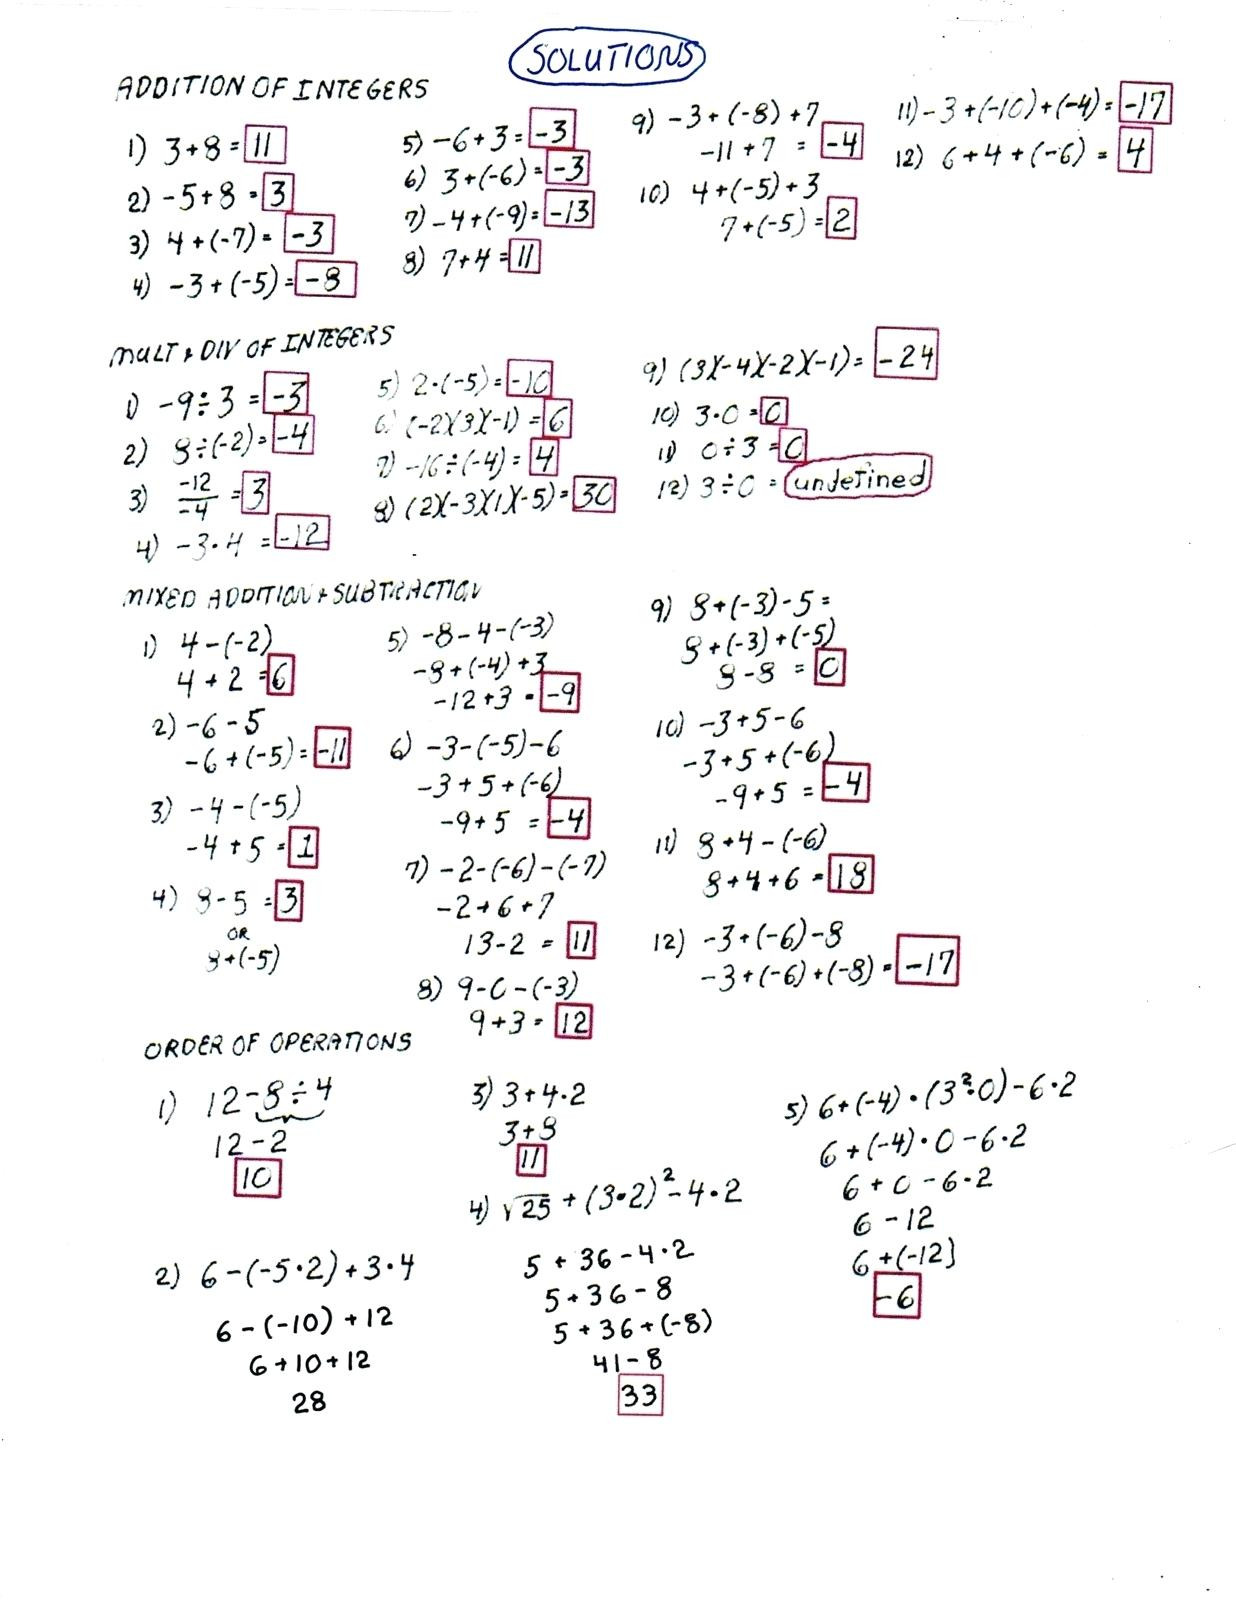 SOLUTIONS
ADDITION OF INTEGERS
1) 3+8 = 11
2) -5+8 = 3
3) 4+(-7) = -3
4) -3+(-5) = -8
5) -6+3 = -3
6) 3+(-6) = -3
7) -4+(-9) = -13
8) 7+4 = 11
9) -3+(-8)+7
-11+7 = -4
10) 4+(-5)+3
7+(-5) = 2
11) -3+(-10)+(-4) = -17
12) 6+4+(-6) = 4
MULT & DIV OF INTEGERS
1) -9÷3 = -3
2) 8÷(-2) = -4
3) -12/-4 = 3
4) -3·4 = -12
5) 2·(-5) = -10
6) (-2)(3)(-1) = 6
7) -16÷(-4) = 4
8) (2)(-3)(1)(-5) = 30
9) (3)(-4)(-2)(-1) = -24
10) 3·0 = 0
11) 0÷3 = 0
12) 3÷0 = undefined
MIXED ADDITION & SUBTRACTION
1) 4-(-2)
4+2 = 6
2) -6-5
-6+(-5) = -11
3) -4-(-5)
-4+5 = 1
4) 8-5 = 3
OR
8+(-5)
5) -8-4-(-3)
-8+(-4)+3
-12+3 = -9
6) -3-(-5)-6
-3+5+(-6)
-9+5 = -4
7) -2-(-6)-(-7)
-2+6+7
13-2 = 11
8) 9-0-(-3)
9+3 = 12
9) 8+(-3)-5 =
8+(-3)+(-5)
8-8 = 0
10) -3+5-6
-3+5+(-6)
-9+5 = -4
11) 8+4-(-6)
8+4+6 = 18
12) -3+(-6)-8
-3+(-6)+(-8) = -17
ORDER OF OPERATIONS
1) 12-8÷4
12-2
10
2) 6-(-5·2)+3·4
6-(-10)+12
6+10+12
28
3) 3+4·2
3+8
11
4) √25+(3·2)²-4·2
5+36-4·2
5+36-8
5+36+(-8)
41-8
33
5) 6+(-4)·(3²·0)-6·2
6+(-4)·0-6·2
6+0-6·2
6-12
6+(-12)
-6